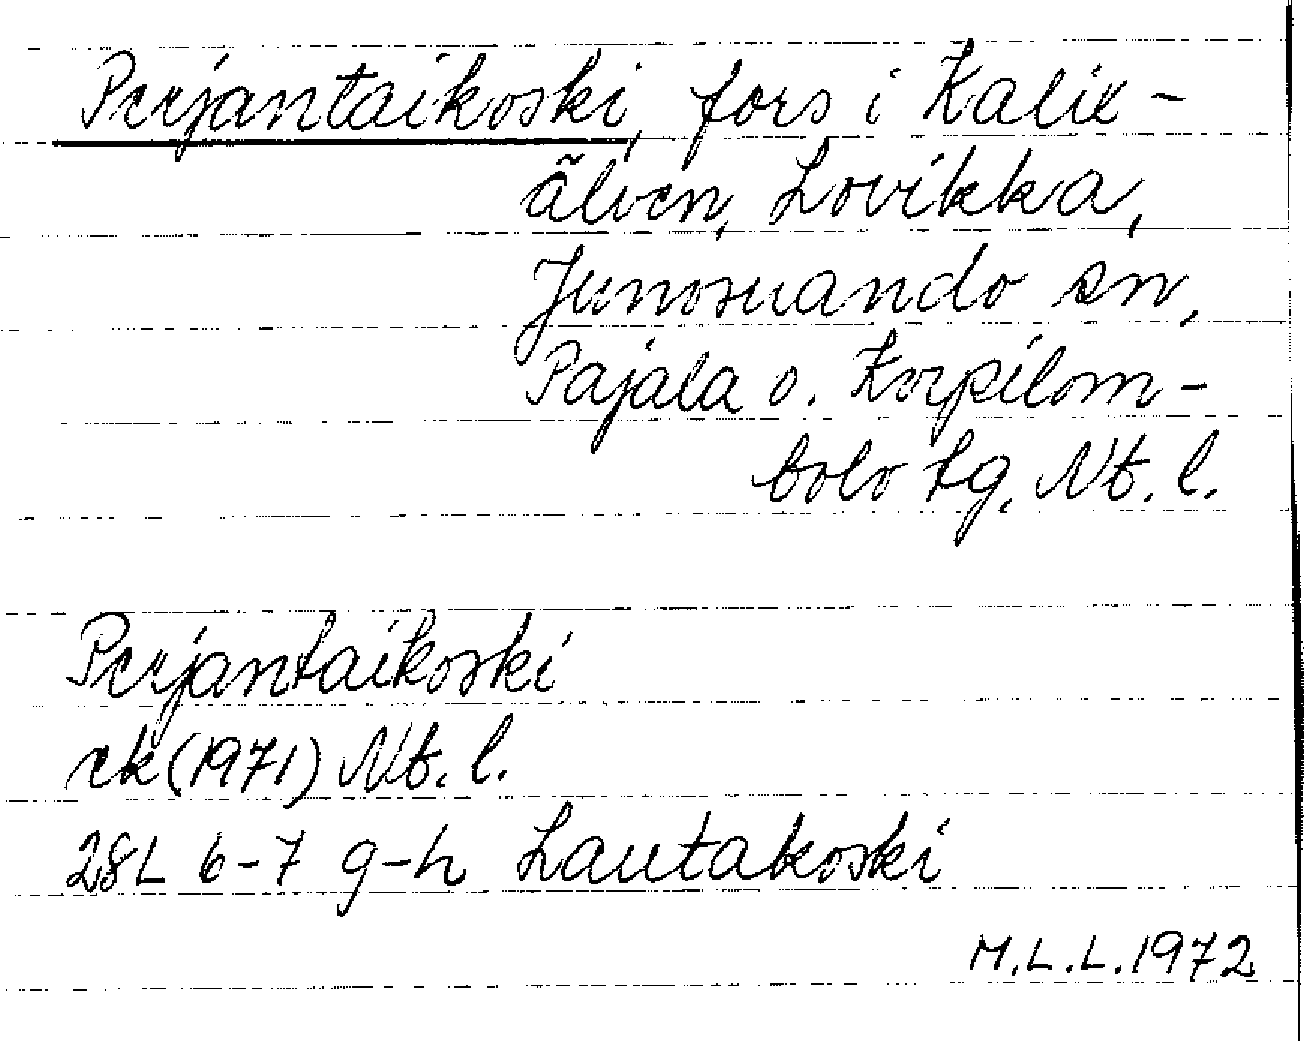 Perjantaikoski, fors i Kalix-
älven, Lovikka,
Junosuando sn,
Pajala o. Korpilom-
bolo tg, Nb. l.
Perjantaikoski
ek (1971) Nb. l.
28L 6-7 g-h Lautakoski
M.L.L. 1972